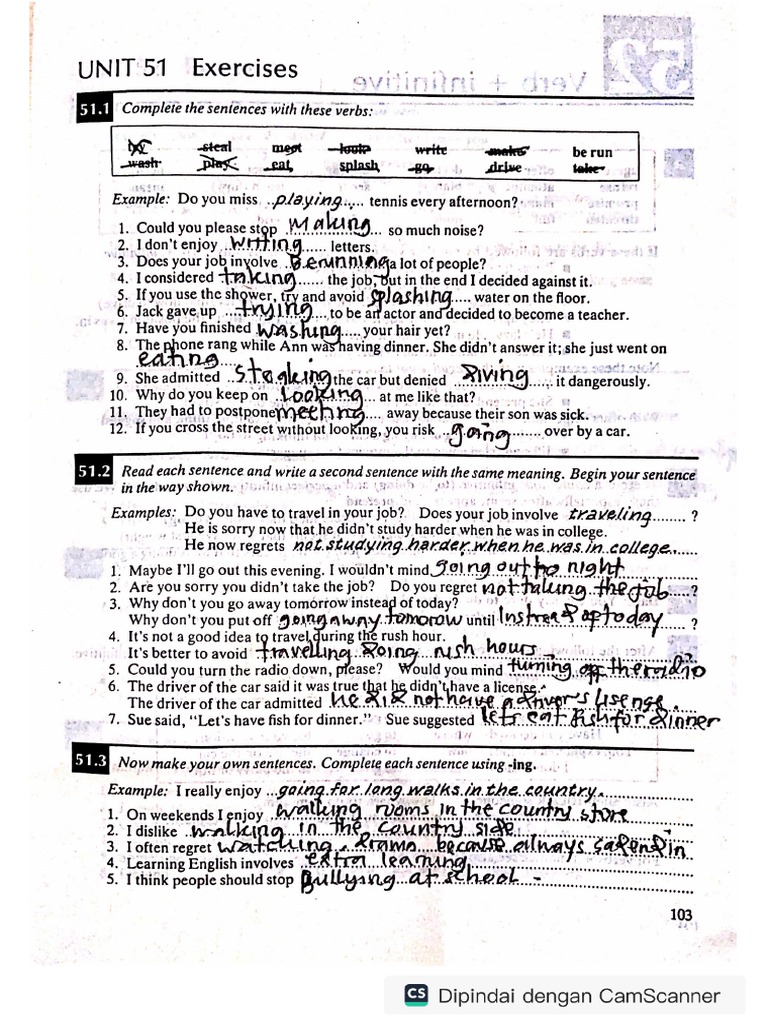 UNIT 51 Exercises
51.1 Complete the sentences with these verbs:
try steal meet look write make be run
wash play eat splash go drive take
Example: Do you miss ..playing..... tennis every afternoon?
1. Could you please stop ..Making.... so much noise?
2. I don't enjoy ..writing...... letters.
3. Does your job involve ..Berunning a lot of people?
4. I considered ..taking...... the job, but in the end I decided against it.
5. If you use the shower, try and avoid splashing.... water on the floor.
6. Jack gave up ...trying.... to be an actor and decided to become a teacher.
7. Have you finished washing..... your hair yet?
8. The phone rang while Ann was having dinner. She didn't answer it; she just went on
eating....
9. She admitted ..steaking the car but denied ..driving..... it dangerously.
10. Why do you keep on ..Looking.... at me like that?
11. They had to postpone meeting.... away because their son was sick.
12. If you cross the street without looking, you risk ..going........ over by a car.
51.2 Read each sentence and write a second sentence with the same meaning. Begin your sentence
in the way shown.
Examples: Do you have to travel in your job? Does your job involve traveling........ ?
He is sorry now that he didn't study harder when he was in college.
He now regrets not studying harder when he was in college.....
1. Maybe I'll go out this evening. I wouldn't mind going out to night
2. Are you sorry you didn't take the job? Do you regret not taking the job....?
3. Why don't you go away tomorrow instead of today?
Why don't you put off going away tomorow until Instead of today ?
4. It's not a good idea to travel during the rush hour.
It's better to avoid travelling doing rush hours
5. Could you turn the radio down, please? Would you mind turning off the radio
6. The driver of the car said it was true that he didn't have a license.
The driver of the car admitted he did not have a driver's lisense.
7. Sue said, "Let's have fish for dinner." Sue suggested lets eat fish for dinner
51.3 Now make your own sentences. Complete each sentence using -ing.
Example: I really enjoy ...going for long walks in the country.
1. On weekends I enjoy walking rooms in the country store
2. I dislike ..walking in the country side
3. I often regret watching drama because always
4. Learning English involves extra learning
5. I think people should stop Bullying at school -
103
CS Dipindai dengan CamScanner